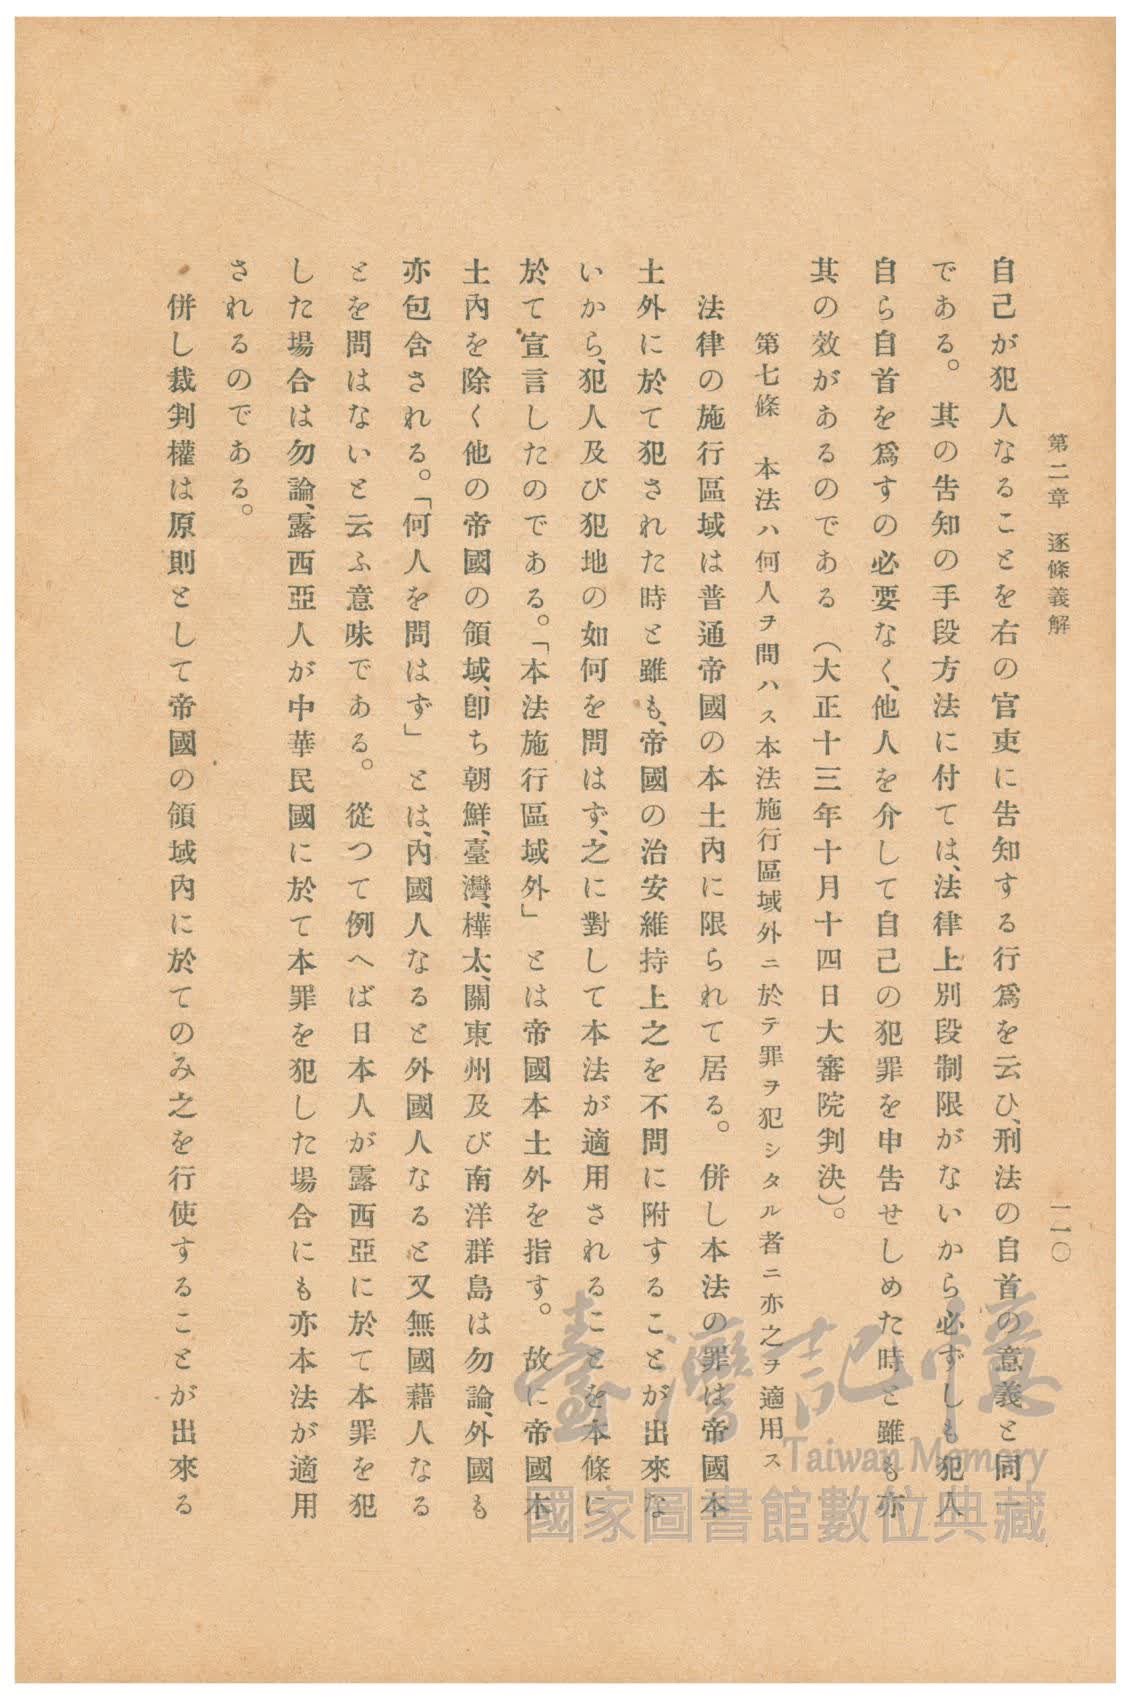 第二章　逐條義解　一一〇
自己が犯人なることを右の官吏に告知する行爲を云ひ、刑法の自首の意義と同一
である。其の告知の手段方法に付ては、法律上別段制限がないから必ずしも犯人
自ら自首を爲すの必要なく、他人を介して自己の犯罪を申告せしめた時と雖も亦
其の效があるのである（大正十三年十月十四日大審院判決）。
第七條　本法ハ何人ヲ問ハス本法施行區域外ニ於テ罪ヲ犯シタル者ニ亦之ヲ適用ス
法律の施行區域は普通帝國の本土內に限られて居る。併し本法の罪は帝國本
土外に於て犯された時と雖も、帝國の治安維持上之を不問に附することが出來な
いから、犯人及び犯地の如何を問はず、之に對して本法が適用されることを本條に
於て宣言したのである。「本法施行區域外」とは帝國本土外を指す。故に帝國本
土內を除く他の帝國の領域、卽ち朝鮮、臺灣、樺太、關東州及び南洋群島は勿論、外國も
亦包含される。「何人を問はず」とは、內國人なると外國人なると又無國藉人なる
とを問はないと云ふ意味である。從つて例へば日本人が露西亞に於て本罪を犯
した場合は勿論、露西亞人が中華民國に於て本罪を犯した場合にも亦本法が適用
されるのである。
併し裁判權は原則として帝國の領域內に於てのみ之を行使することが出來る
臺灣記憶
Taiwan Memory
國家圖書館數位典藏